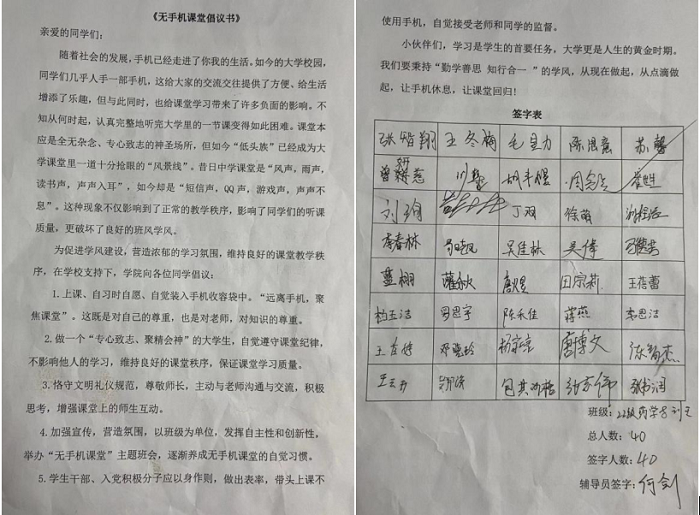 《无手机课堂倡议书》
亲爱的同学们：
随着社会的发展，手机已经走进了你我的生活。如今的大学校园，
同学们几乎人手一部手机，这给大家的交流交往提供了方便、给生活
增添了乐趣，但与此同时，也给课堂学习带来了许多负面的影响。不
知从何时起，认真完整地听完大学里的一节课变得如此困难。课堂本
应是全无杂念、专心致志的神圣场所，但如今“低头族”已经成为大
学课堂里一道十分抢眼的“风景线”。昔日中学课堂是“风声，雨声，
读书声，声声入耳”，如今却是“短信声，QQ声，游戏声，声声不
息”。这种现象不仅影响到了正常的教学秩序，影响了同学们的听课
质量，更破坏了良好的班风学风。
为促进学风建设，营造浓郁的学习氛围，维持良好的课堂教学秩
序，在学校支持下，学院向各位同学倡议：
1.上课、自习时自愿、自觉装入手机收容袋中。“远离手机，聚
焦课堂”。这既是对自己的尊重，也是对老师，对知识的尊重。
2.做一个“专心致志、聚精会神”的大学生，自觉遵守课堂纪律，
不影响他人的学习，维持良好的课堂秩序，保证课堂学习质量。
3.恪守文明礼仪规范，尊敬师长，主动与老师沟通与交流，积极
思考，增强课堂上的师生互动。
4.加强宣传，营造氛围，以班级为单位，发挥自主性和创新性，
举办“无手机课堂”主题班会，逐渐养成无手机课堂的自觉习惯。
5.学生干部、入党积极分子应以身作则，做出表率，带头上课不
使用手机，自觉接受老师和同学的监督。
小伙伴们，学习是学生的首要任务，大学更是人生的黄金时期。
我们要秉持“勤学善思 知行合一”的学风，从现在做起，从点滴做
起，让手机休息，让课堂回归！
签字表
张智翔 王冬梅 毛旦力 陈思意 苏馨
刘 丁羽 徐萌
李春林 吴佳林 吴倩
蓝栩 唐煜 田宗莉 王蓓蕾
罗思宇 陈禾佳 蒋燕 李思洁
邓晓玲 唐博文 陈智杰
包其 张家伟
班级：22级药学
总人数：40
签字人数：40
辅导员签字：何剑